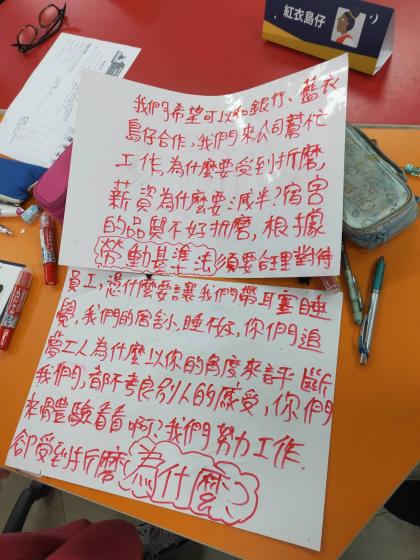 紅衣島仔
我們希望可以和銀行、藍衣
島仔合作,我們來公司幫忙
工作,為什麼要受到折磨,
薪資為什麼要減半?宿舍
的品質不好折磨,根據
勞動基準法須要合理對待
員工,憑什麼要讓我們帶耳塞睡
覺,我們的宿舍,睡不好,你們追
夢工人為什麼以你的角度來評斷
我們,都不考良別人的感受,你們
來體驗看看啊?我們努力工作、
卻受到折磨,為什麼?